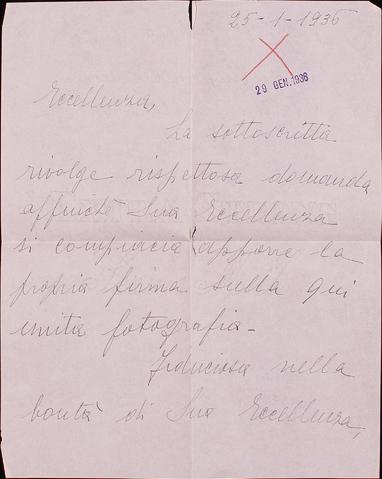 25-1-1936
29 GEN. 1936
Eccellenza,
La sottoscritta
rivolge rispettosa domanda
affinchè Sua Eccellenza
si compiacia apporre la
propria firma sulla qui
unita fotografia-
Fiduciosa nella
bontà di Sua Eccellenza,